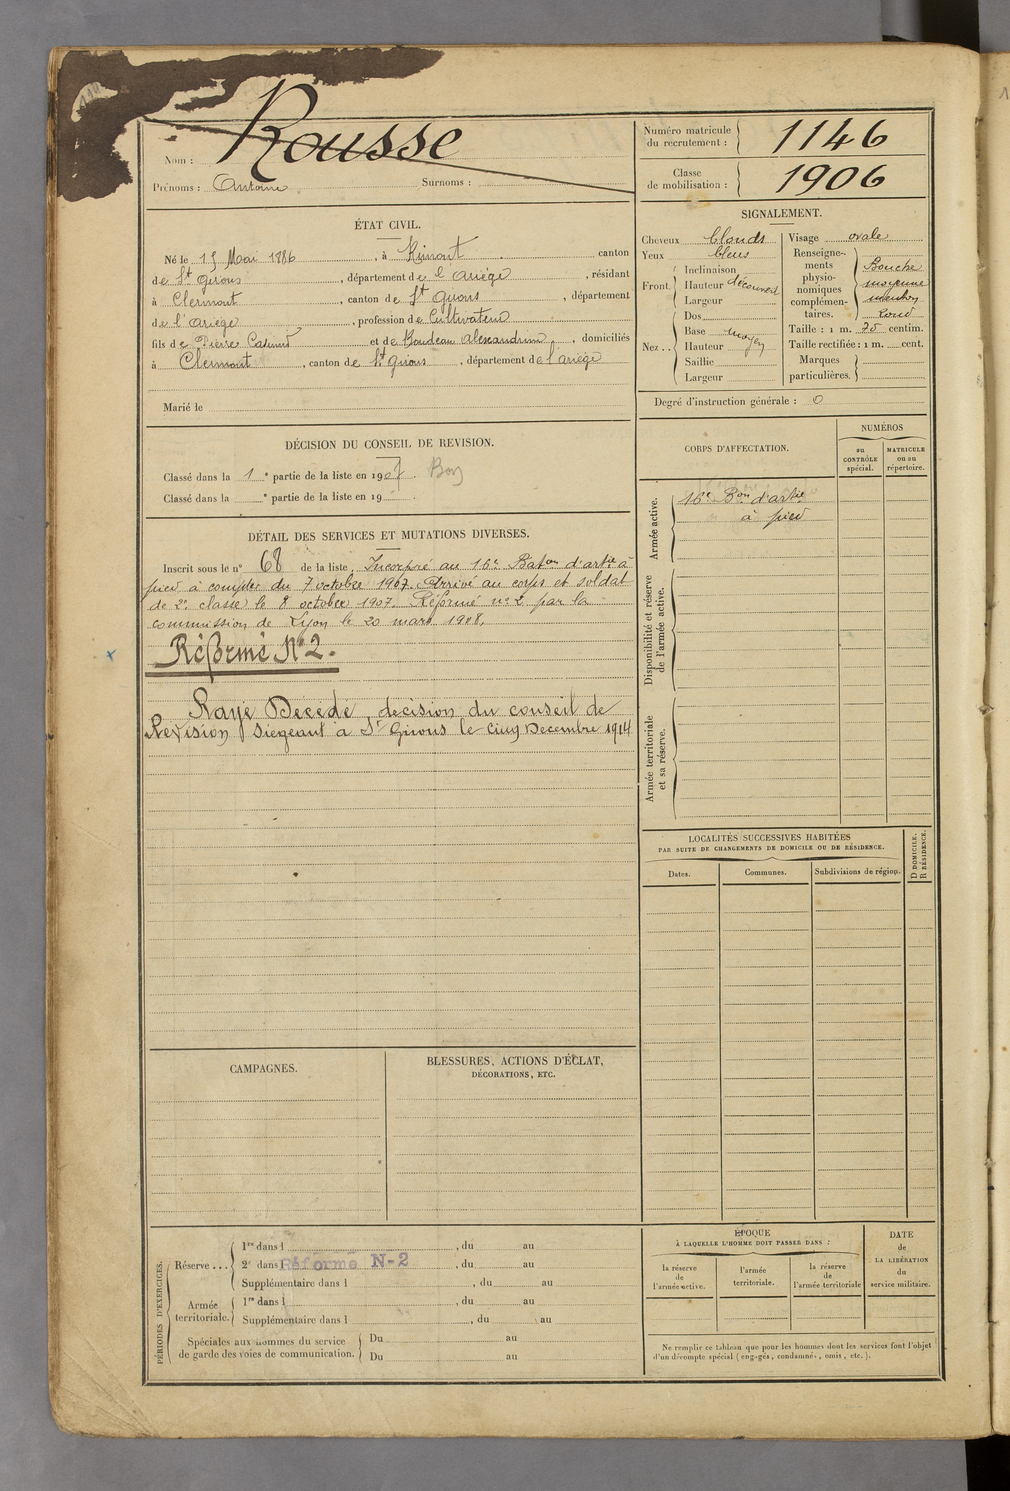 Nom : Rousse
Prénoms : Antoine Surnoms :
Numéro matricule du recrutement : 1146
Classe de mobilisation : 1906
ÉTAT CIVIL.
Né le 15 Mai 1886, à Rimont canton
de St Girons, département de l'Ariège, résidant
à Clermont, canton de St Girons, département
de l'Ariège, profession de Cultivateur
fils de Pierre Casimir et de Boudeau Alexandrine, domiciliés
à Clermont, canton de St Girons, département de l'ariège
Marié le
SIGNALEMENT.
Cheveux blonds
Yeux bleus
Front. Inclinaison
Hauteur découvert
Largeur
Nez .. Dos
Base moyen
Hauteur
Saillie
Largeur
Visage ovale
Renseignements physionomiques complémentaires. Bouche
moyenne
menton
rond
Taille : 1 m. 75 centim.
Taille rectifiée : 1 m. cent.
Marques particulières.
Degré d'instruction générale : 0
DÉCISION DU CONSEIL DE REVISION.
Classé dans la 1 e partie de la liste en 1907. Bon
Classé dans la e partie de la liste en 19 .
CORPS D'AFFECTATION.
NUMÉROS
au CONTRÔLE spécial.
MATRICULE ou au répertoire.
Armée active.
16e Bon d'artie
à pied
Disponibilité et réserve de l'armée active.
Armée territoriale et sa réserve.
DÉTAIL DES SERVICES ET MUTATIONS DIVERSES.
Inscrit sous le n° 68 de la liste. Incorporé au 16e Baton d'artie à
pied à compter du 7 octobre 1907. Arrivé au corps et soldat
de 2e classe le 8 octobre 1907. Réformé no 2 par la
commission de Lyon le 20 mars 1908.
Réformé N° 2.
Rayé Décédé, decision du conseil de
Revision Siégeant à St Girons le cinq Decembre 1914
LOCALITÉS SUCCESSIVES HABITÉES
PAR SUITE DE CHANGEMENTS DE DOMICILE OU DE RÉSIDENCE.
D DOMICILE.
R RÉSIDENCE.
Dates. Communes. Subdivisions de région.
CAMPAGNES.
BLESSURES, ACTIONS D'ÉCLAT,
DÉCORATIONS, ETC.
PÉRIODES D'EXERCICES.
Réserve ...
1re dans l , du au
2e dans l Réformé N-2 , du au
Supplémentaire dans l , du au
Armée territoriale.
1re dans l , du au
Supplémentaire dans l , du au
Spéciales aux hommes du service
de garde des voies de communication.
Du au
Du au
ÉPOQUE
À LAQUELLE L'HOMME DOIT PASSER DANS :
la réserve de l'armée active.
l'armée territoriale.
la réserve de l'armée territoriale
DATE
de
LA LIBÉRATION
du
service militaire.
Ne remplir ce tableau que pour les hommes dont les services font l'objet
d'un décompte spécial (engagés, condamnés, omis, etc.).